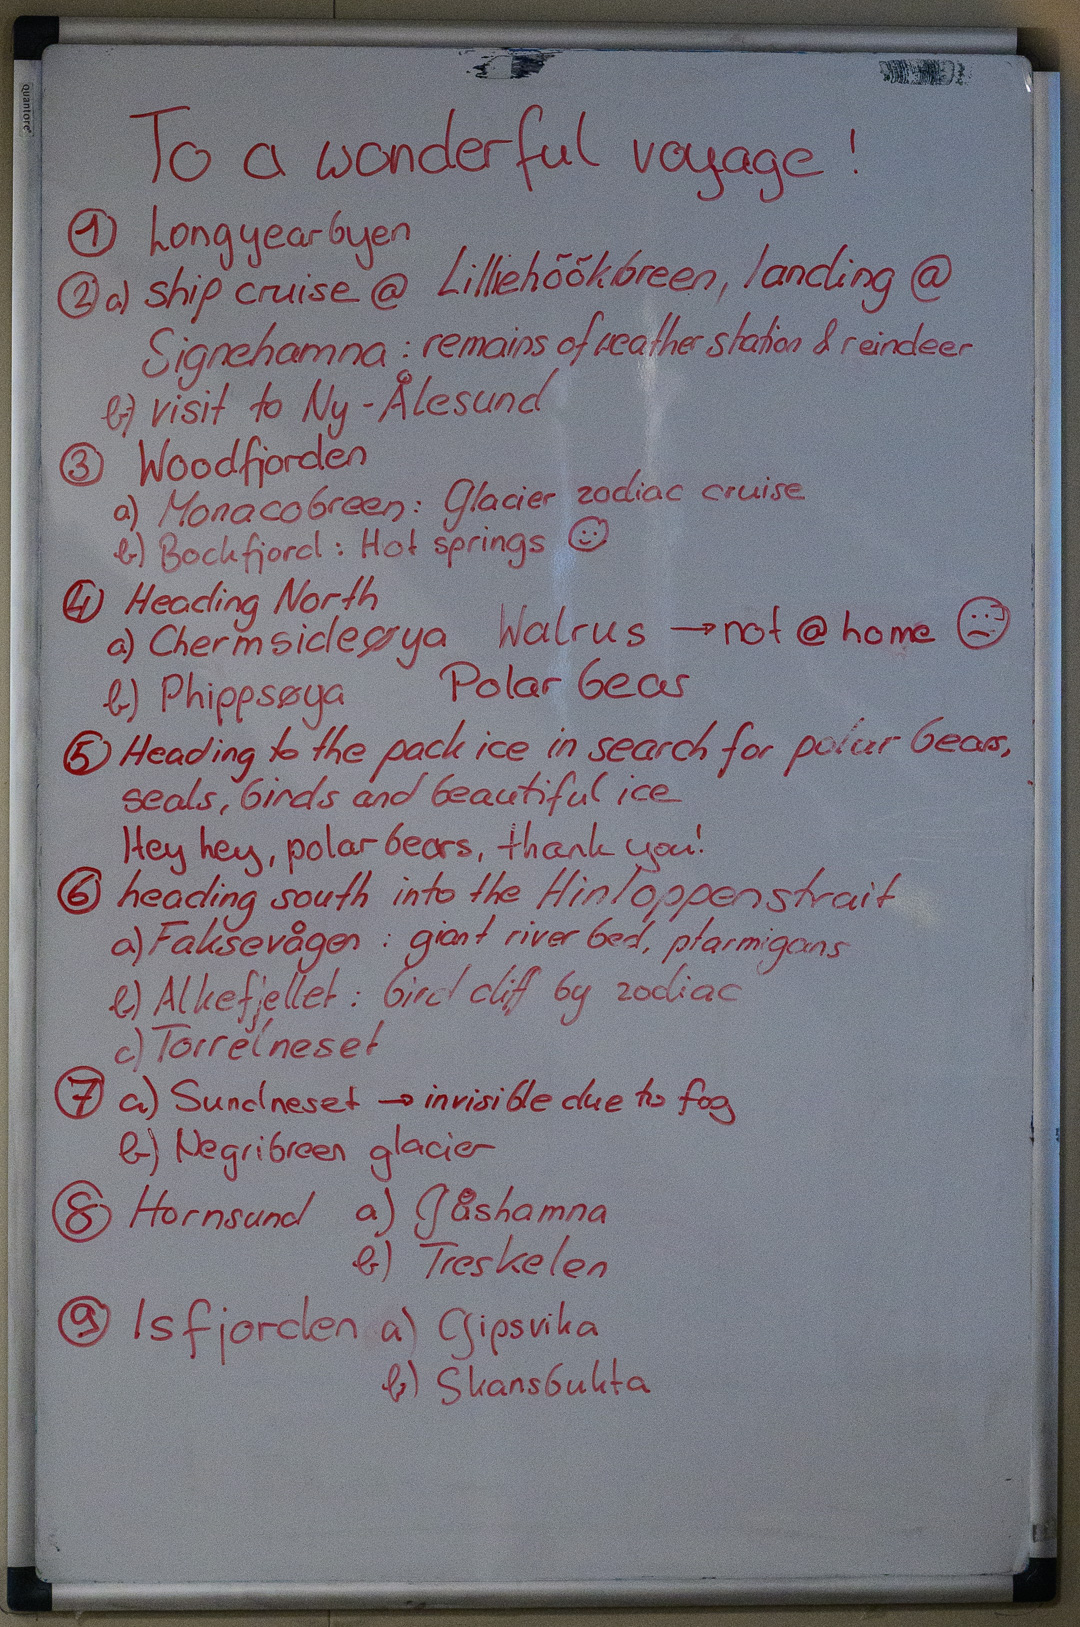 quantore
To a wonderful voyage!
① Longyearbyen
② a) ship cruise @ Lilliehöökbreen, landing @
Signehamna: remains of weather station & reindeer
b) visit to Ny-Ålesund
③ Woodfjorden
a) Monacobreen: Glacier zodiac cruise
b) Bockfjord: Hot springs ☺
④ Heading North
a) Chermsideøya Walrus → not @ home ☹
b) Phippsøya Polar bears
⑤ Heading to the pack ice in search for polar bears,
seals, birds and beautiful ice
Hey hey, polar bears, thank you!
⑥ heading south into the Hinloppenstrait
a) Faksevågen: giant river bed, ptarmigans
b) Alkefjellet: bird cliff by zodiac
c) Torrelneset
⑦ a) Sundneset → invisible due to fog
b) Negribreen glacier
⑧ Hornsund a) Gåshamna
b) Treskelen
⑨ Isfjorden a) Gipsvika
b) Skansbukta